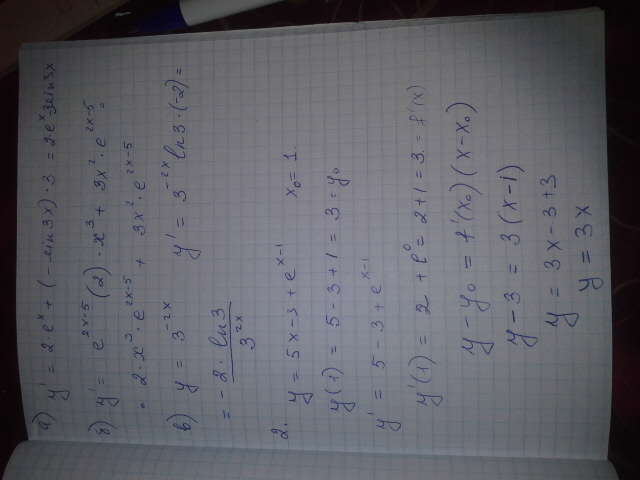 а) y' = 2·e^x + (-sin3x)·3 = 2·e^x 3sin3x
б) y' = e^{2x-5} (2)·x^3 + 3x^2·e^{2x-5} =
= 2·x^3·e^{2x-5} + 3x^2·e^{2x-5}
в) y = 3^{-2x} y' = 3^{-2x} ln3·(-2) =
= - \frac{2·ln3}{3^{2x}}
2. y = 5x-3+e^{x-1} x_0 = 1.
y(1) = 5-3+1 = 3 = y_0
y' = 5-3+e^{x-1}
y'(1) = 2+e^0 = 2+1 = 3 = f'(x)
y-y_0 = f'(x_0)(x-x_0)
y-3 = 3(x-1)
y = 3x-3+3
y = 3x